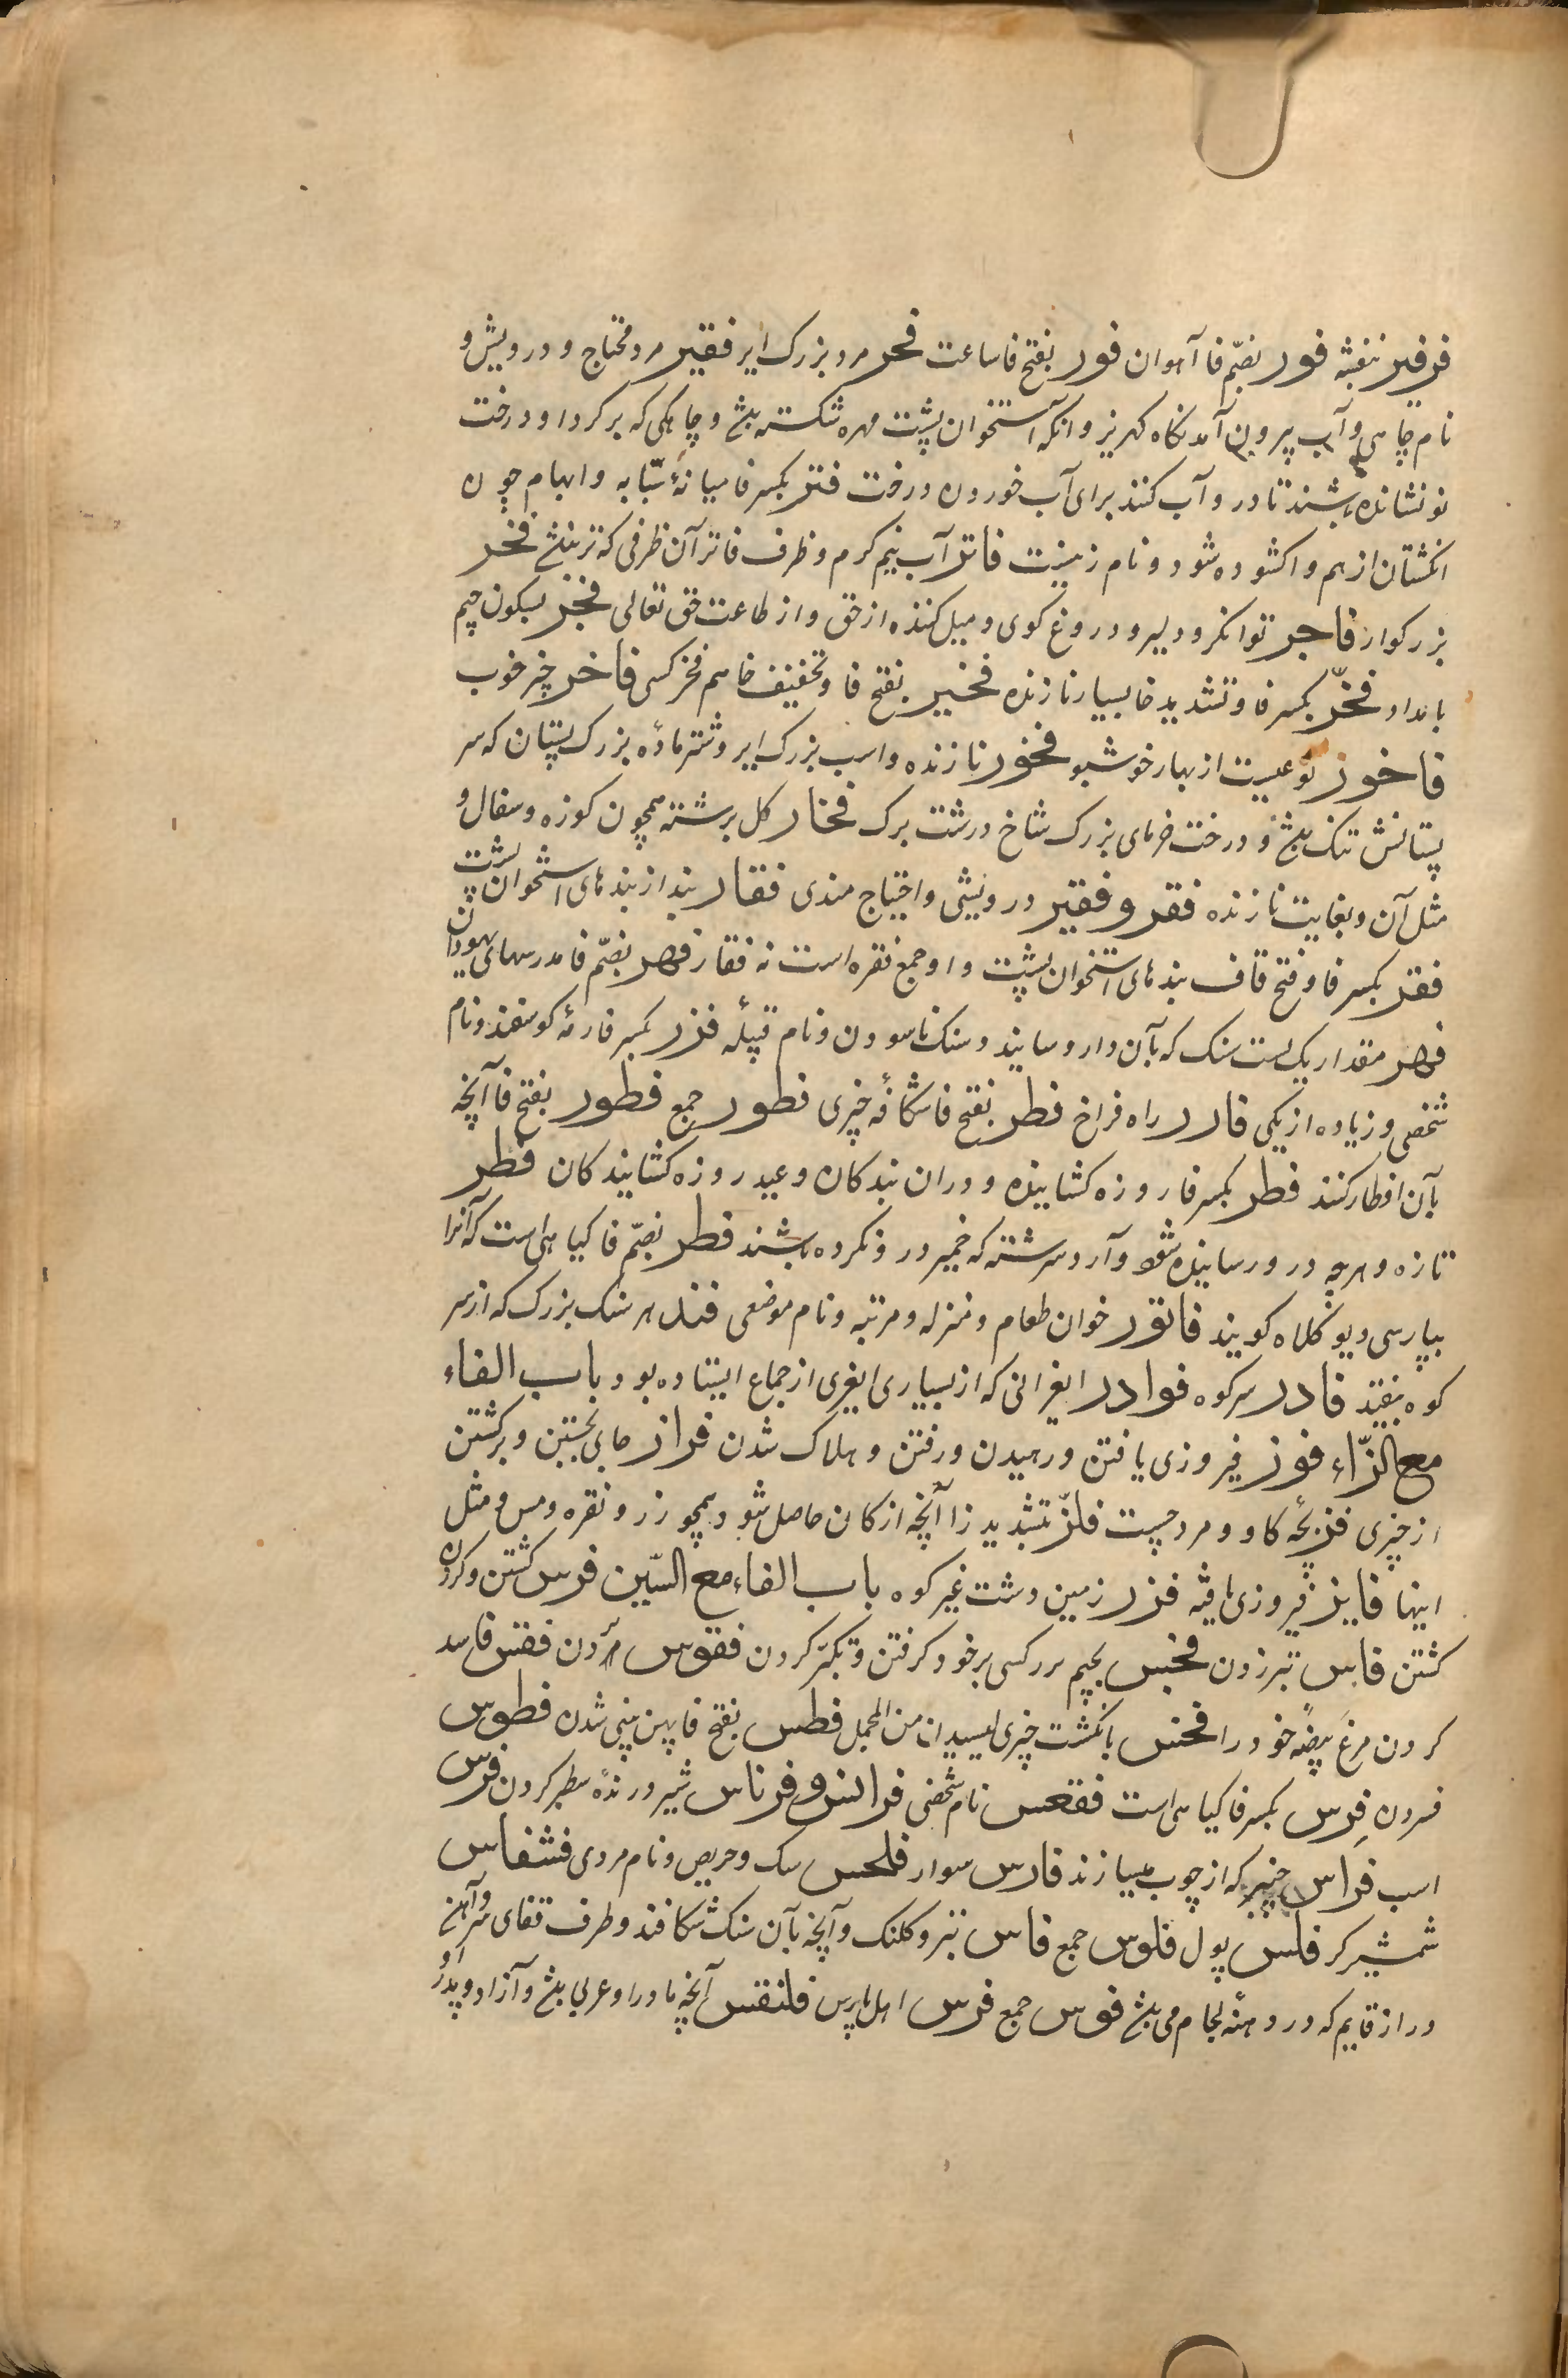 فرفیر بنفشه فور بضمّ فا آهوان فور بفتح فا ساعت فخر مرد بزرک ایر فقیر مرد محتاج و درویش و
نام چاهی و آب بیرون آمدنکاه کهریز و آنکه استخوان پشت مهره شکسته باشد و چاهکی که بر کرد او درخت
نو نشانده باشند تا در و آب کنند برای آب خوردن درخت فتر بکسر فا میانهٔ سبّابه و ابهام چون
انکشتان از هم واکشوده شود و نام زنیست فاتر آب نیم کرم و ظرف فاتر آن ظرفی که تر باشد فخر
بزرکوار فاجر توانکر و دلیر و دروغ کوی و میل کننده از حق و از طاعت حق تعالی فجر بسکون جیم
بامداد فخّر بکسر فا و تشدید خا بسیار نازنده فخیر بفتح فا و تخفیف خا هم فخر کسی فاخر چیز خوب
فاخور نوعیست از بهار خوشبو فخور نازنده و اسب بزرک ایر و شتر مادهٔ بزرک پستان که سر
پستانش تنک باشد و درخت خرمای بزرک شاخ درشت برک فخار کل برشته همچون کوزه و سفال و
مثل آن و بغایت نازنده فقر و فقیر درویشی و احتیاج مندی فقار بند از بندهای استخوان پشت
فقر بکسر فا و فتح قاف بندهای استخوان پشت و او جمع فقره است نه فقار فهر بضمّ فا مدرسهای یهودان
فهر مقدار یکدست سنک که بآن دارو سایند و سنک ناسودن و نام قبیله فزر بکسر فا رمهٔ کوسفند و نام
شخصی و زیاده از یکی فازر راه فراخ فطر بفتح فا شکافهٔ چیزی فطور جمع فطور بفتح فا آنچه
بآن افطار کنند فطر بکسر فا روزه کشاینده و دران بندکان و عید روزه کشایندکان فطر
تازه و هرچه در و رسانیده شود و آرد سرشته که خمیر در و نکرده باشند فطر بضمّ فا کیاهی است که آنرا
بپارسی دیو کلاه کویند فاثور خوان طعام و منزله و مرتبه و نام موضعی فندر هر سنک بزرک که از سر
کوه بیفتد فادر سر کوه فوادر ایغرانی که از بسیاری ایغری از جماع ایستاده بود باب الفاء
مع الزّاء فوز فیروزی یافتن و رهیدن و رفتن و هلاک شدن فراز جای جستن و برکشتن
از چیزی فز بچهٔ کاو و مرد چست فلزّ بتشدید زا آنچه از کان حاصل شود همچو زر و نقره و مس و مثل
اینها فایز فیروزی یافته فزر زمین دشت غیر کوه باب الفاء مع السّین فرس کشتن و کردن
کشتن فاس تبر زدن فجس بجیم سر کسی بر خود کرفتن و تکبّر کردن فقوس مردن فقس فاسد
کردن مرغ بیضهٔ خود را فحس بانکشت چیزی لیسیدن من المجمل فطس بفتح فا پهن بینی شدن فطوس
مردن فرس بکسر فا کیاهی است فقعس نام شخصی فرانس و فرناس شیر درندهٔ سطبر کردن فرس
اسب فراس چنبر که از چوب میسازند فارس سوار فلحس سک و حریص و نام مردی فشفاس
شمشیر کر فلس پول فلوس جمع فاس تبر و کلنک و آنچه بآن سنک شکافند و طرف قفای سر و آهن
دراز قایم که در دهنهٔ لجام می باشد فوس جمع فرس اهل پارس فلنقس آنچه مادر او عربی باشد و آزاد و پدر او